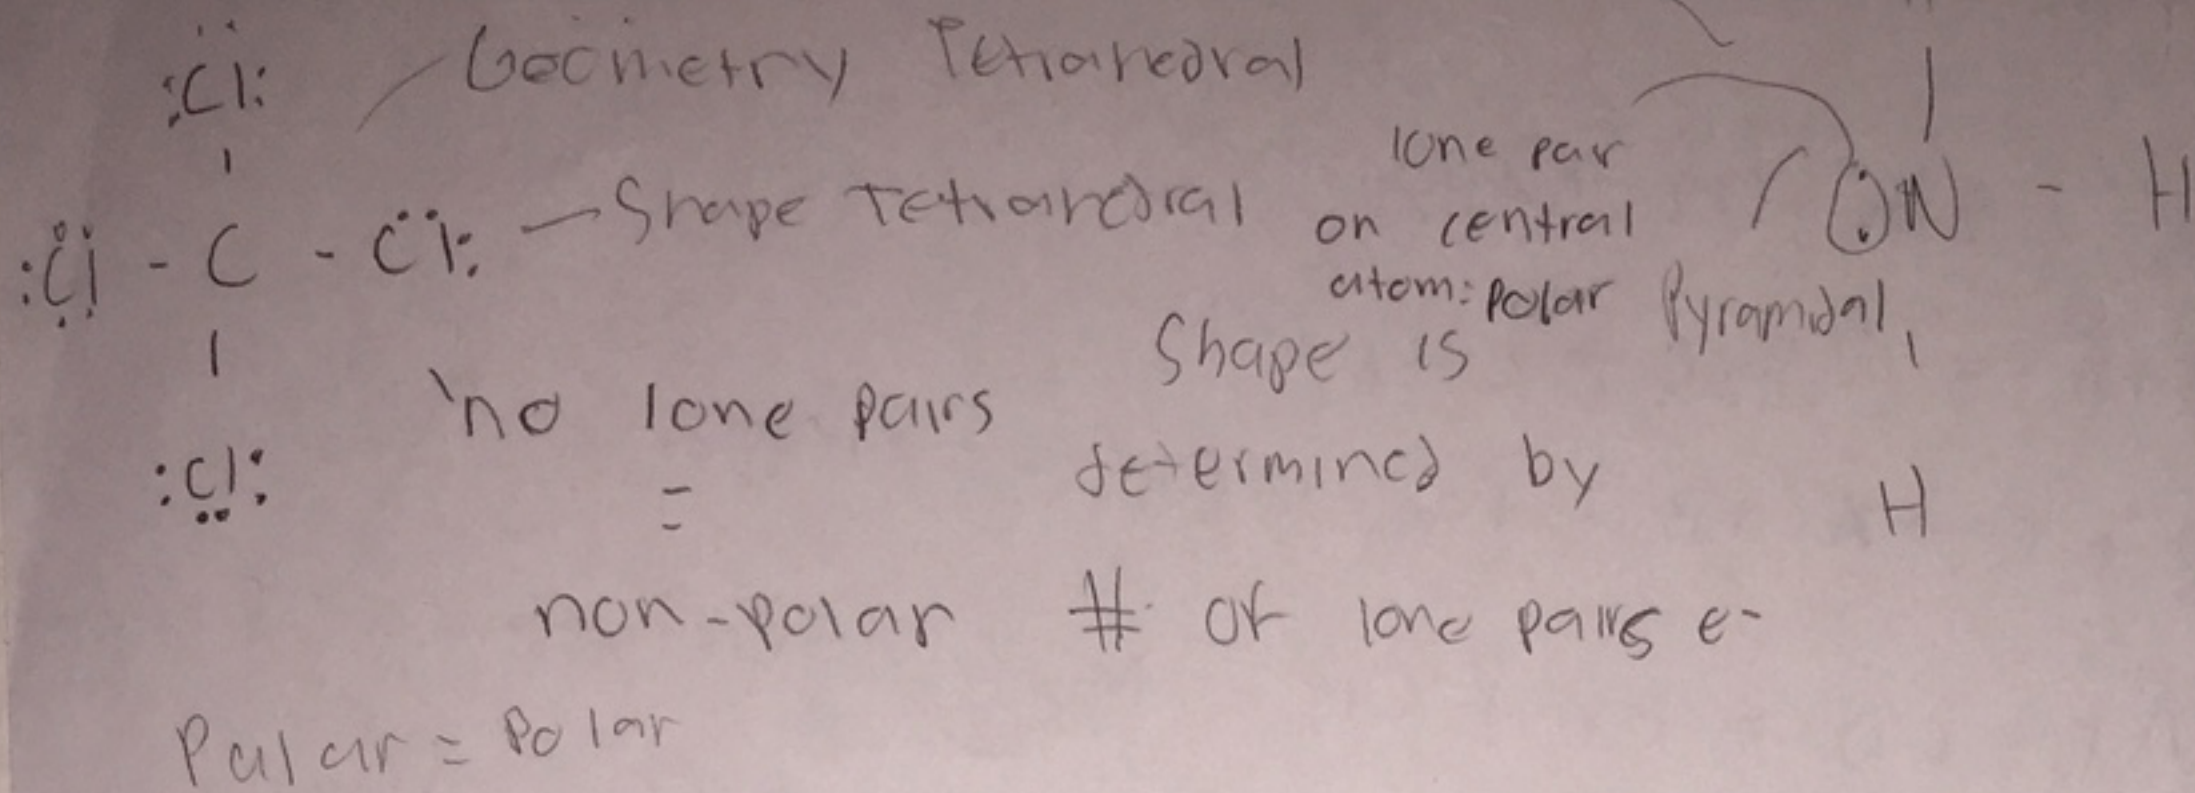 :Cl: Geometry Tetrahedral
:Cl - C - Cl: — Shape Tetrahedral
:Cl:
no lone pairs
=
non-polar
Polar = Polar
lone par
on central
atom: polar
N - H
Pyramidal
H
Shape is
determined by
# of lone pairs e-